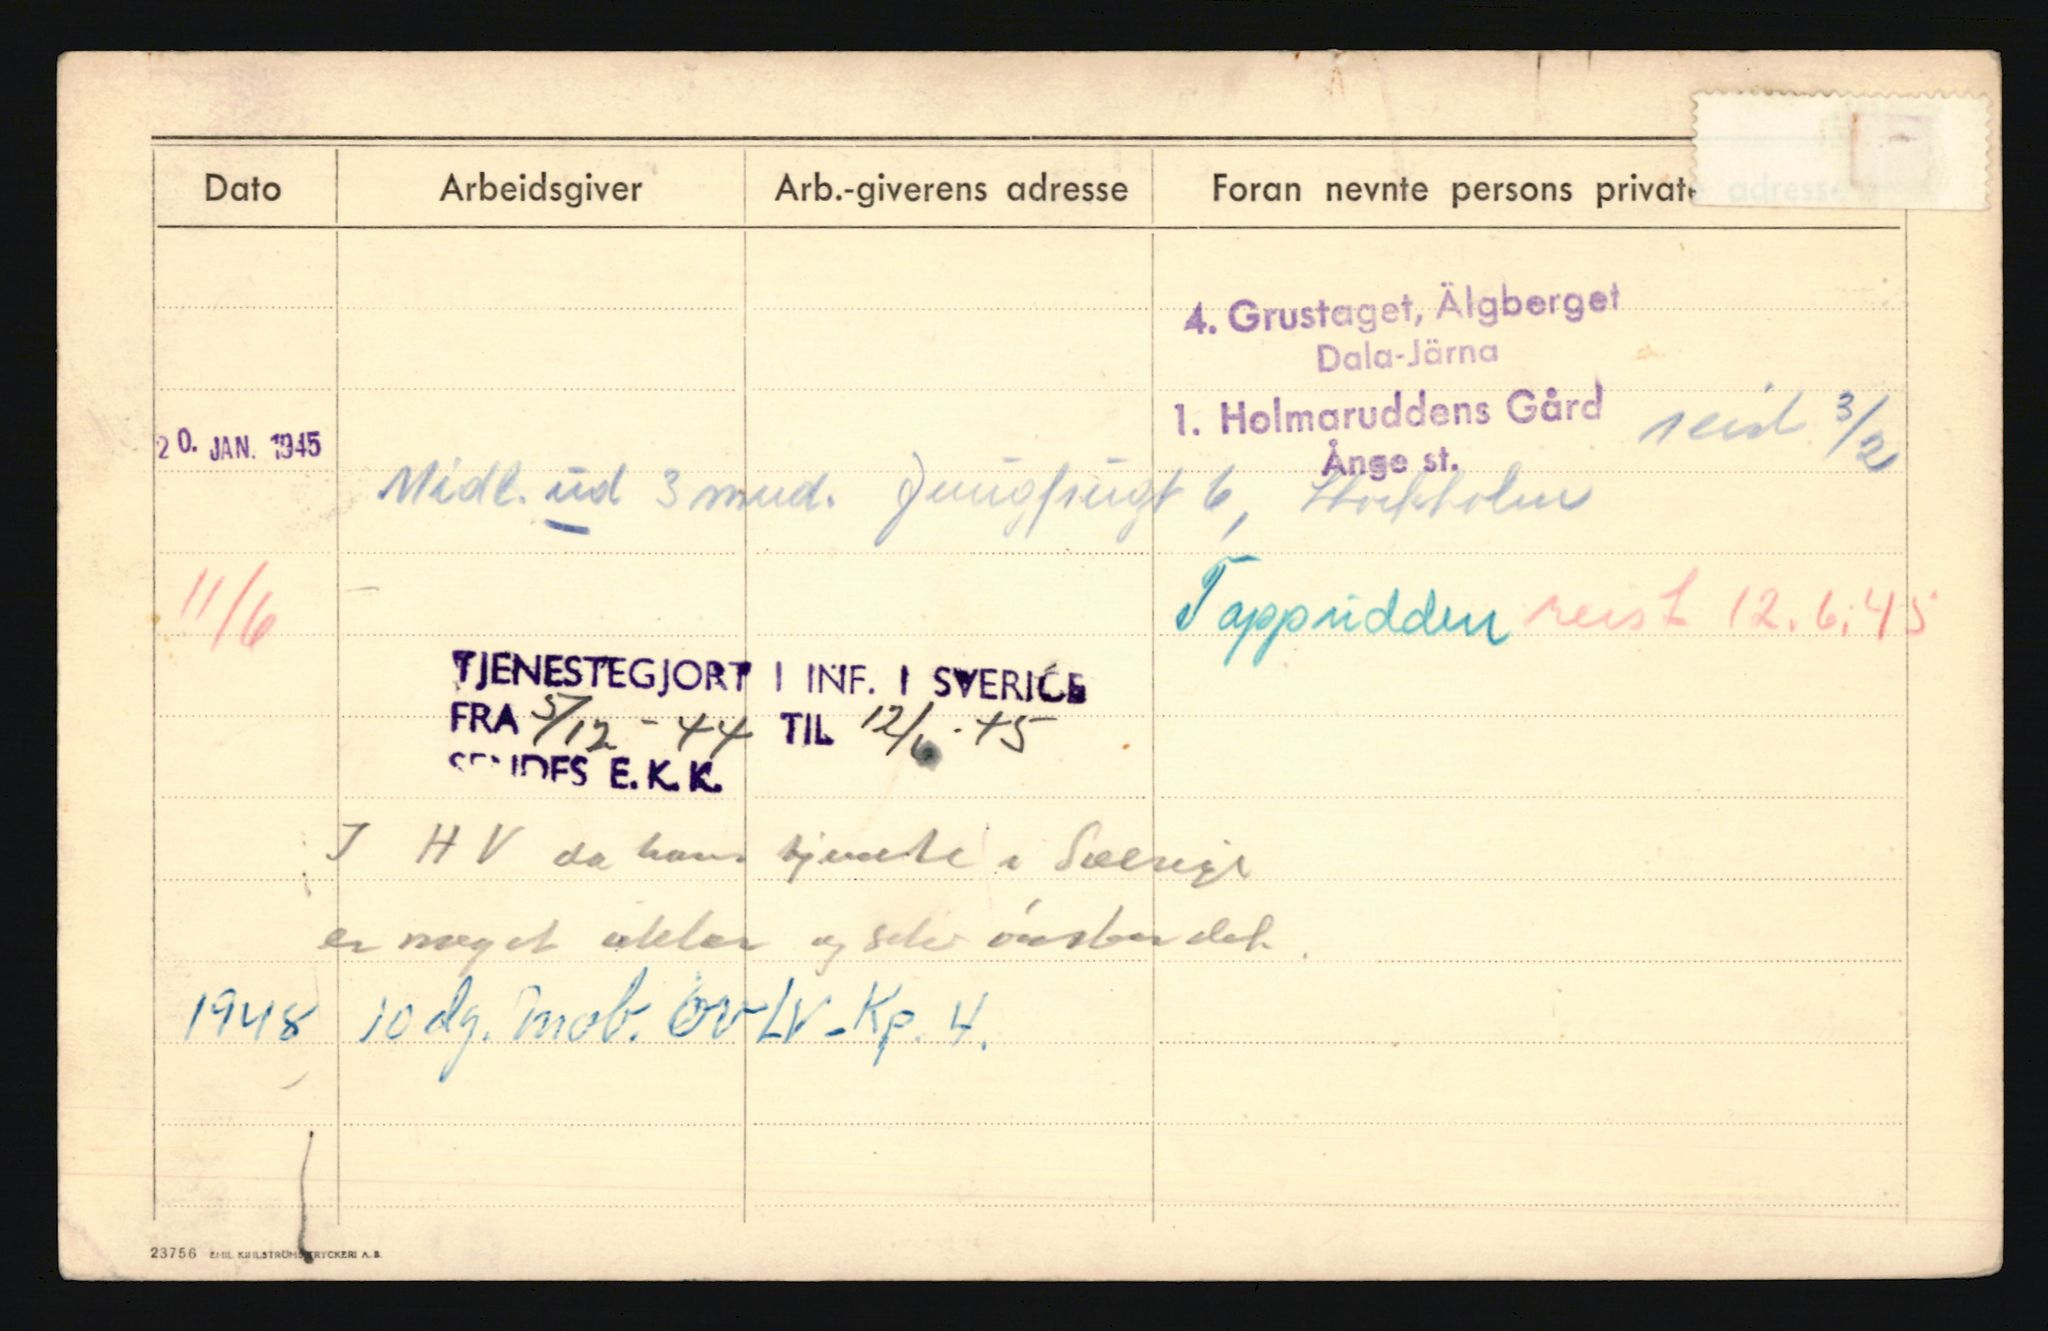 Dato Arbeidsgiver Arb.-giverens adresse Foran nevnte persons private adresse
4. Grustaget, Älgberget
Dala-Järna
1. Holmaruddens Gård reist 3/2
Ånge st.
20. JAN. 1945
Midl. ud 3 mnd. Jungfrugt 6, Stockholm
11/6 Tappudden reist 12.6.45
TJENESTEGJORT I INF. I SVERIGE
FRA 5/12 - 44 TIL 12/6 - 45
SENDES E.K.K.
I HV da hans tjeneste i Sverige
er meget uklar og
1948 10 dg. Mob. ØV LV-Kp. 4.
23756 EMIL KIHLSTRÖMS TRYCKERI A. B.